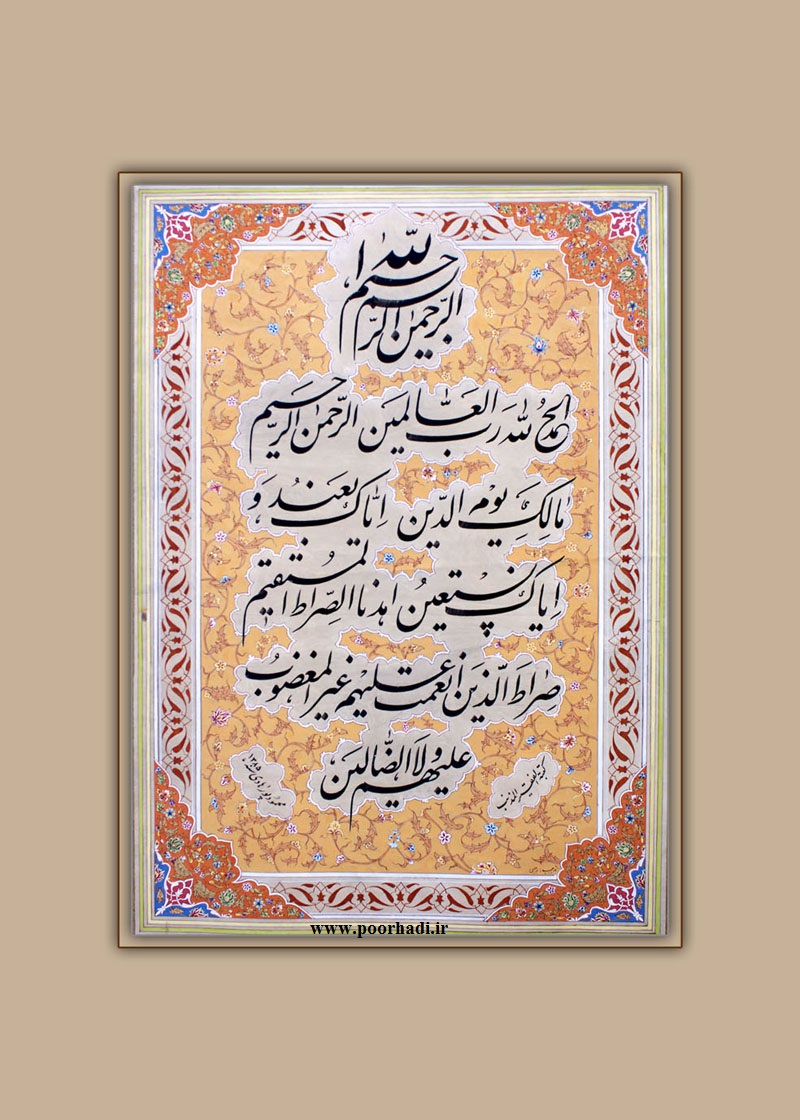 بسم الله الرحمن الرحیم
الحمدُ لله رَبِّ العالمین الرّحمنِ الرّحیم
مالِکِ یَوْمِ الدّین اِیّاکَ نعبُدُ وَ
اِیاکَ نستَعینُ اهدنا الصِّراطَ المُستقیم
صِراطَ الّذینَ انعمتَ علیهم غیرِ المغضوبِ
علیهم ولا الضّالین
کتبه الفقیر المذنب
پورهادی ۱۳۸۵
www.poorhadi.ir